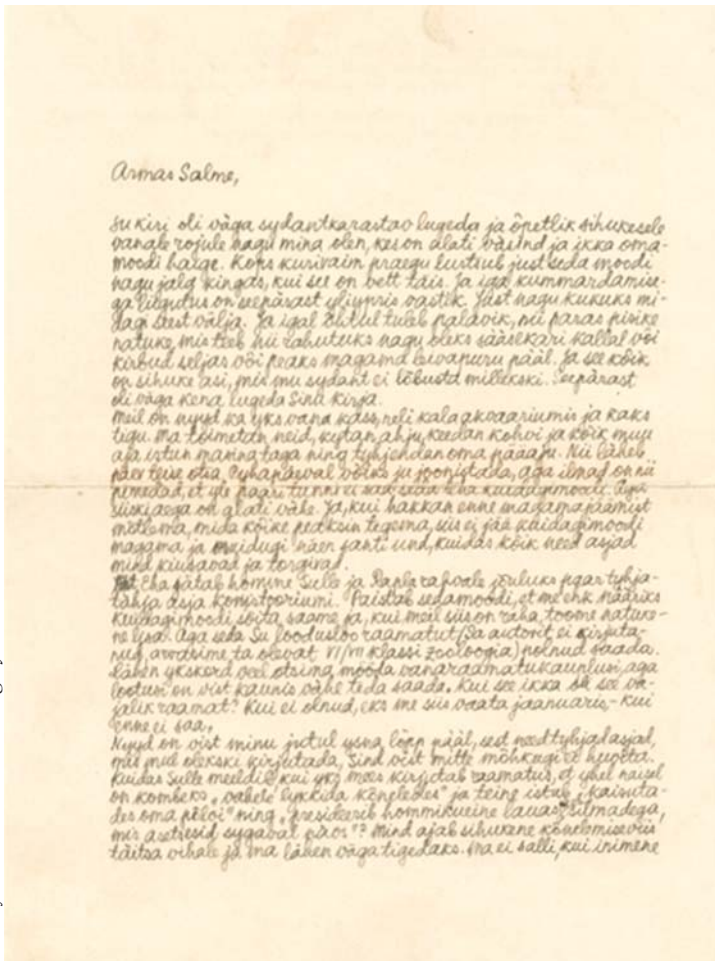 Armas Salme,
Su kiri oli väga sydantkarastav lugeda ja õpetlik sihukesele
vanale rojule nagu mina olen, kes on alati väsind ja ikka oma-
moodi haige. Kops kurivaim praegu lurtsub just seda moodi
nagu jalg kingas, kui see on vett täis. Ja iga kummardamise-
ga liigutus on seepärast yliypris vastik. Just nagu kukuks mi-
dagi seest välja. Ja igal õhtul tuleb palavik, nii paras pisike
natuke, mis teeb nii rahutuks nagu oleks sääsekari kallal või
kirbud seljas või peaks magama leivapuru pääl. Ja see kõik
on sihuke asi, mis mu sydant ei lõbusta millekski. Seepärast
oli väga kena lugeda Sinu kirja.
Meil on nyyd ka yks vana kass, neli kala akvaariumis ja kaks
tigu. Ma toimetan neid, kytan ahju, keedan kohvi ja kõik muu
aja istun masina taga ning tyhjendan oma pääaju. Nii läheb
päev teise otsa. Pyhapäeval võiks ju joonistada, aga ilmad on nii
pimedad, et yle paari tunni ei saa seda teha kuidagimoodi. Aga
siiski aega on alati vähe. Ja, kui hakkan enne magamajäämist
mõtlema, mida kõike peaksin tegema, siis ei jää kuidagimoodi
magama ja muidugi näen janti und, kuidas kõik need asjad
mind kiusavad ja torgivad.
Eha jätab homme Sulle ja rahvale jõuluks paar tyhja-
tähja asja konsistooriumi. Paistab sedamoodi, et me ehk nääriks
kuidagimoodi sõita saame ja, kui meil siis on raha, toome natuke-
ne lisa. Aga seda Su loodusloo raamatut (Sa autorit ei kirjuta-
nud, arvasime ta olevat VI/VII klassi zooloogia) polnud saada.
Lähen ykskord veel otsima mööda vanaraamatukauplusi, aga
lootusi on vist kaunis vähe teda saada. Kui see ikka oli see va-
jalik raamat? Kui ei olnud, eks me siis vaata jaanuaris, – kui
enne ei saa.
Nyyd on vist minu jutul ysna lõpp pääl, sest need tyhjad asjad,
mis mul olekski kirjutada, Sind vist mitte mõhkugi ei huvita.
Kuidas Sulle meeldib, kui yks mees kirjutab raamatus, et yhel naisel
on kombeks „vahele lykkida kõneledes“ ja teine istub „kaisuta-
des oma põlvi“ ning „presideerib hommikueine lauas“ silmadega,
mis asetsesid sygaval päos“? Mind ajab sihukene kõnelemiseviis
täitsa vihale ja ma lähen väga tigedaks. Ma ei salli, kui inimene